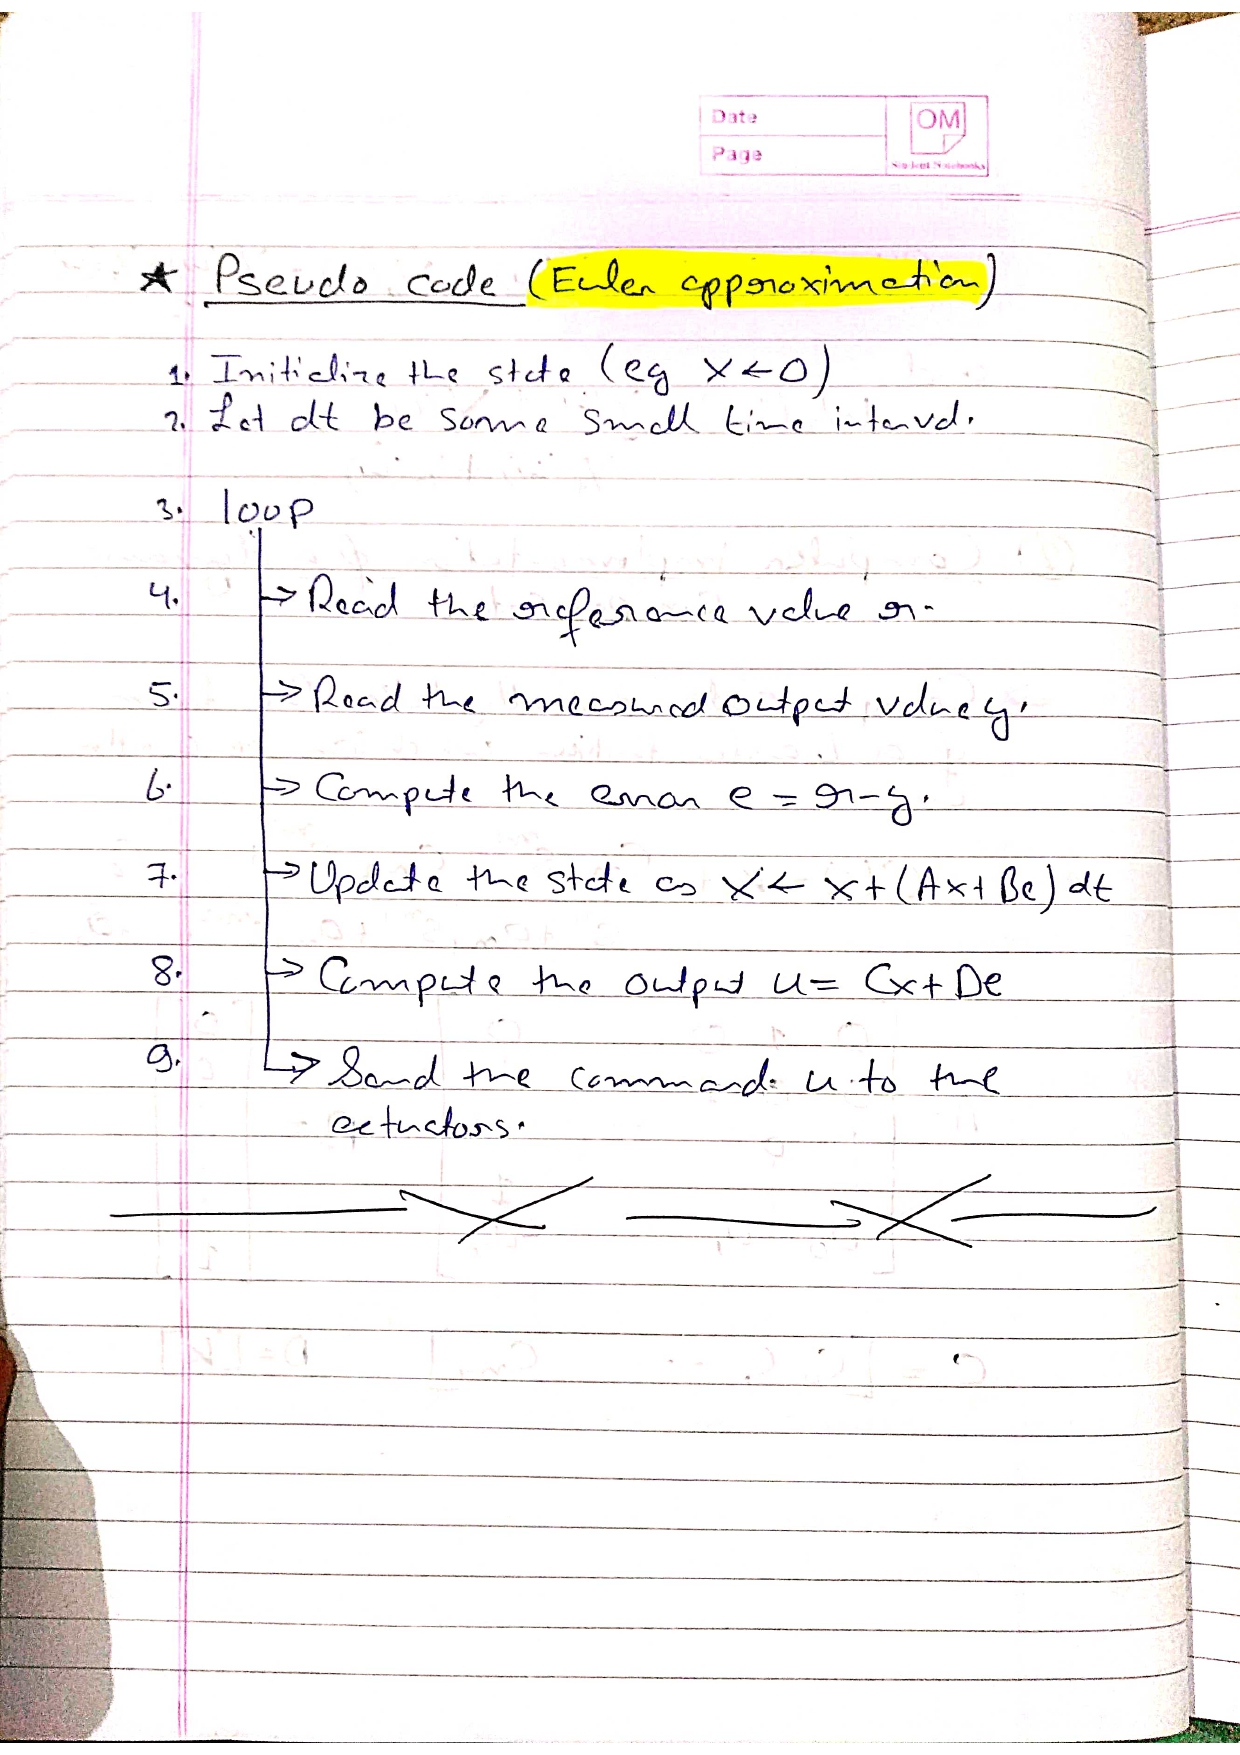 Date
Page
OM
Student Notebooks
★ Pseudo code (Euler approximation)
1. Initialize the state (eg x ← 0)
2. Let dt be some small time interval.
3. loop
4. → Read the reference value r.
5. → Read the measured output value y.
6. → Compute the error e = r-y.
7. → Update the state as x ← x + (Ax + Be) dt
8. → Compute the output u = Cx + De
9. → Send the command u to the
actuators.